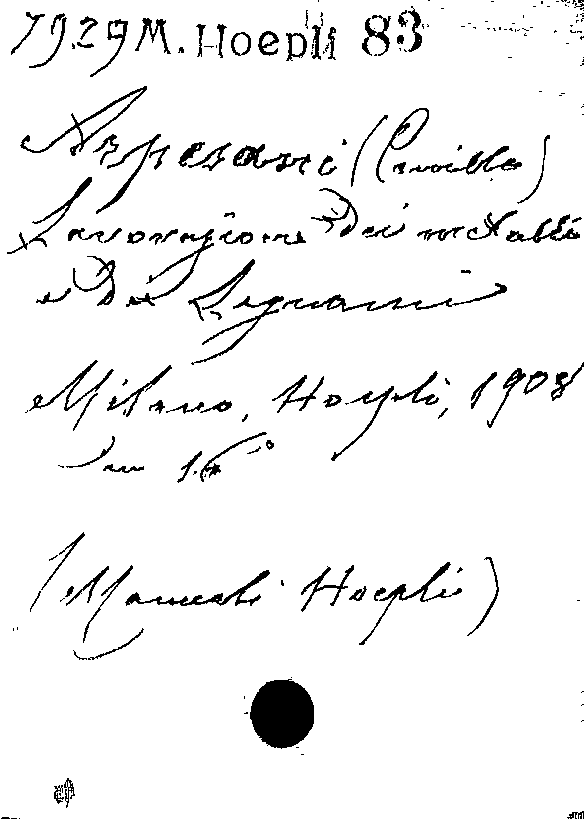 79.29 M. Hoepli 83
Arpesani (Camillo)
Lavorazione dei metalli
e dei Legnami
Milano, Hoepli, 1908
in 16°
(Manuali Hoepli)